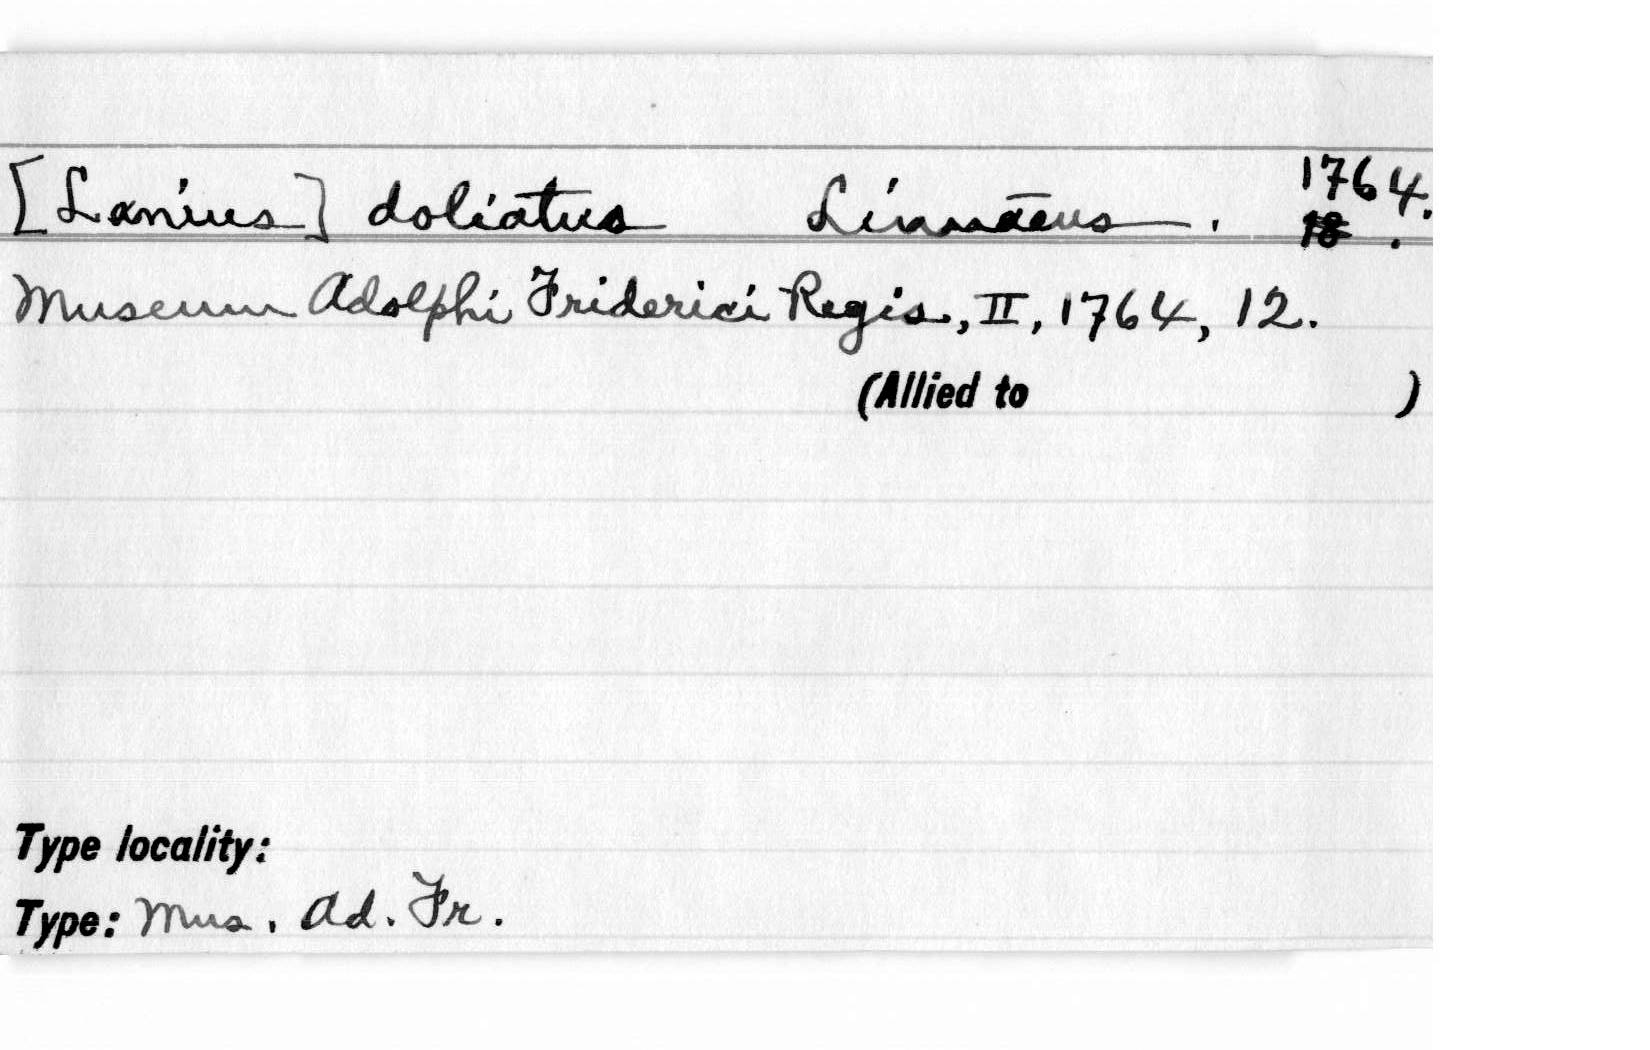 [Lanius] doliatus Linnaeus. 1764.
18 .
Museum Adolphi Friderici Regis, II, 1764, 12.
(Allied to )
Type locality:
Type: Mus. Ad. Fr.